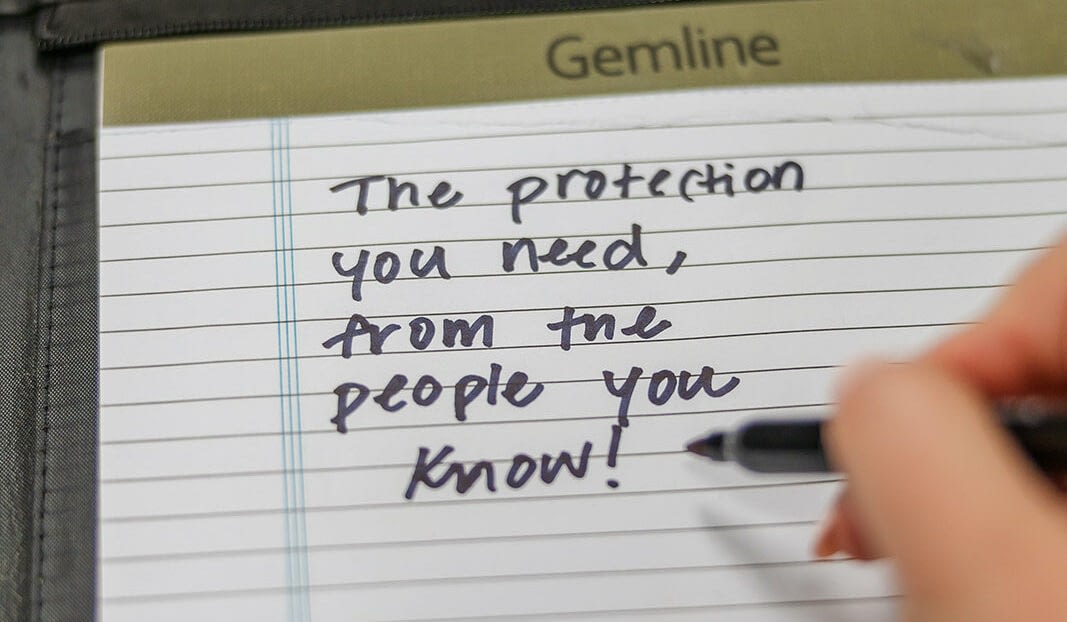 Gemline
The protection
you need,
from the
people you
know!